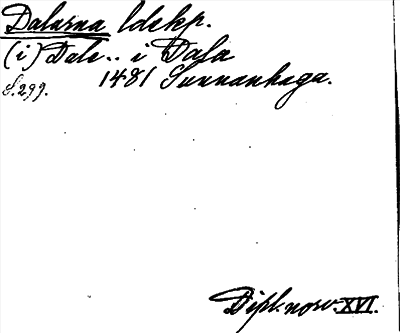 Dalarna ldskp.
(i) Dale.. i Dala
S.299. 1481 Sunnanhaga.
Dipl. norv. XVI.